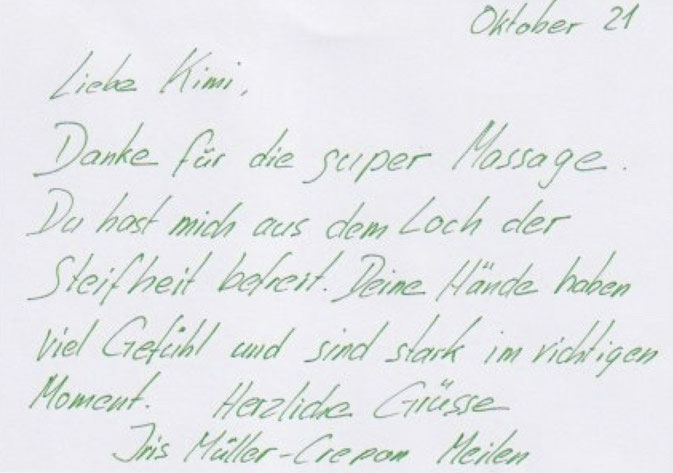 Oktober 21
Liebe Kimi,
Danke für die super Massage.
Du hast mich aus dem Loch der
Steifheit befreit. Deine Hände haben
viel Gefühl und sind stark im richtigen
Moment. Herzliche Grüsse
Iris Müller-Crepon Meilen